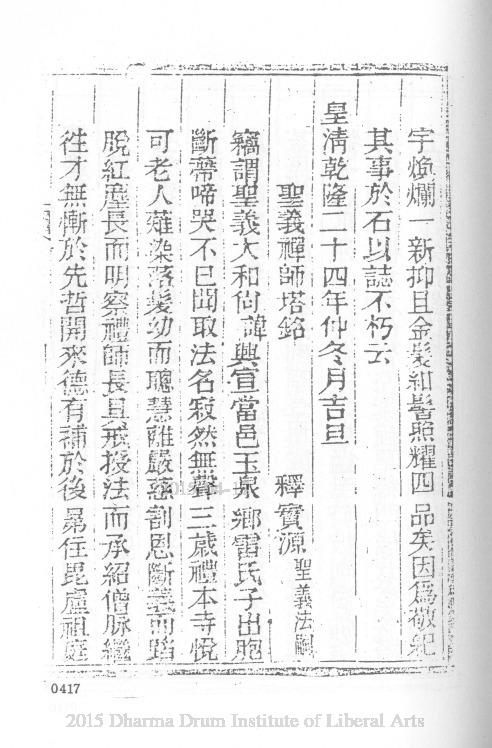 宇煥爛一新抑且金髮紺髻照耀四品矣因爲敬紀
其事於石以誌不朽云
皇清乾隆二十四年仲冬月吉旦
聖義禪師塔銘 釋實源聖義法嗣
竊謂聖義大和尚諱興宣當邑玉泉鄉雷氏子出胞
斷帶啼哭不已聞取法名寂然無聲三歲禮本寺悅
可老人薙染落髮幼而聰慧離嚴慈割恩斷義而蹈
脫紅塵長而明察禮師長具戒授法而承紹僧脉繼
徃才無慚於先哲開來德有補於後昴住毘盧祖庭
0417
2015 Dharma Drum Institute of Liberal Arts